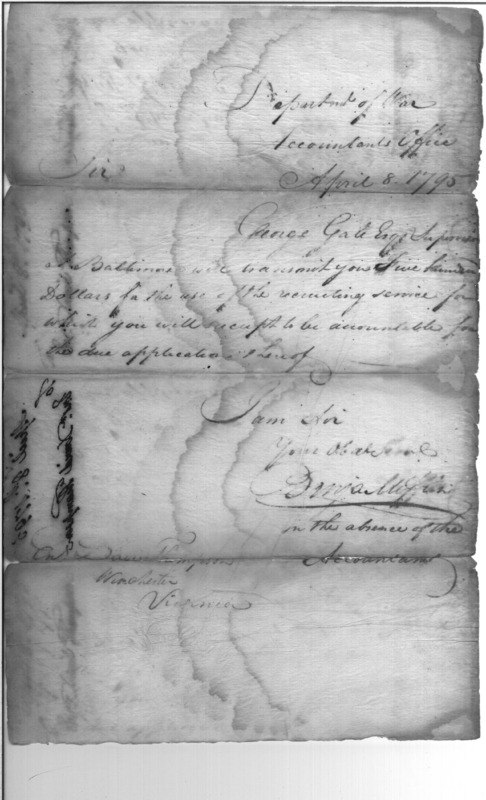 Department of War
Accountants Office
April 8. 1795
Sir
George Gale Esqr. Supervisor
at Baltimore will transmit you five hundred
Dollars for the use of the recruiting service for
which you will receipt to be accountable for
the due application thereof
I am Sir
Your Obed Serv
Benja Mifflin
in the absence of the
Accountant
Thompson
Winchester
Virginia